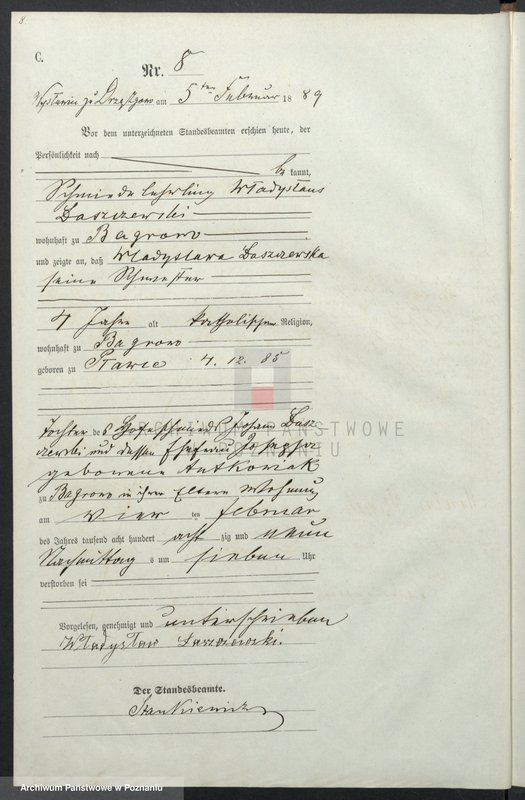 8.
C.
Nr. 8
zu Drzązgowo am 5ten Februar 1889
Vor dem unterzeichneten Standesbeamten erschien heute, der
Persönlichkeit nach
bekannt,
Schmiedelehrling Władysłaus
Daszczewski
wohnhaft zu Bagrowo
und zeigte an, daß Władysława Daszczewska
seine Schwester
4 Jahre alt katholischer Religion,
wohnhaft zu Bagrowo
geboren zu 4. 12. 85
ARCHIWUM PAŃSTWOWE
W POZNANIU
Tochter des Hofeschmieds Johann Dasz-
czewski und dessen Ehefrau Josepha
geborene Antkowiak
zu Bagrowo in ihrer Eltern Wohnung
am vier ten Februar
des Jahres tausend acht hundert acht zig und neun
Nachmittags um sieben Uhr
verstorben sei
Vorgelesen, genehmigt und unterschrieben
Władysław Daszczewski.
Der Standesbeamte.
Stankiewicz
Archiwum Państwowe w Poznaniu